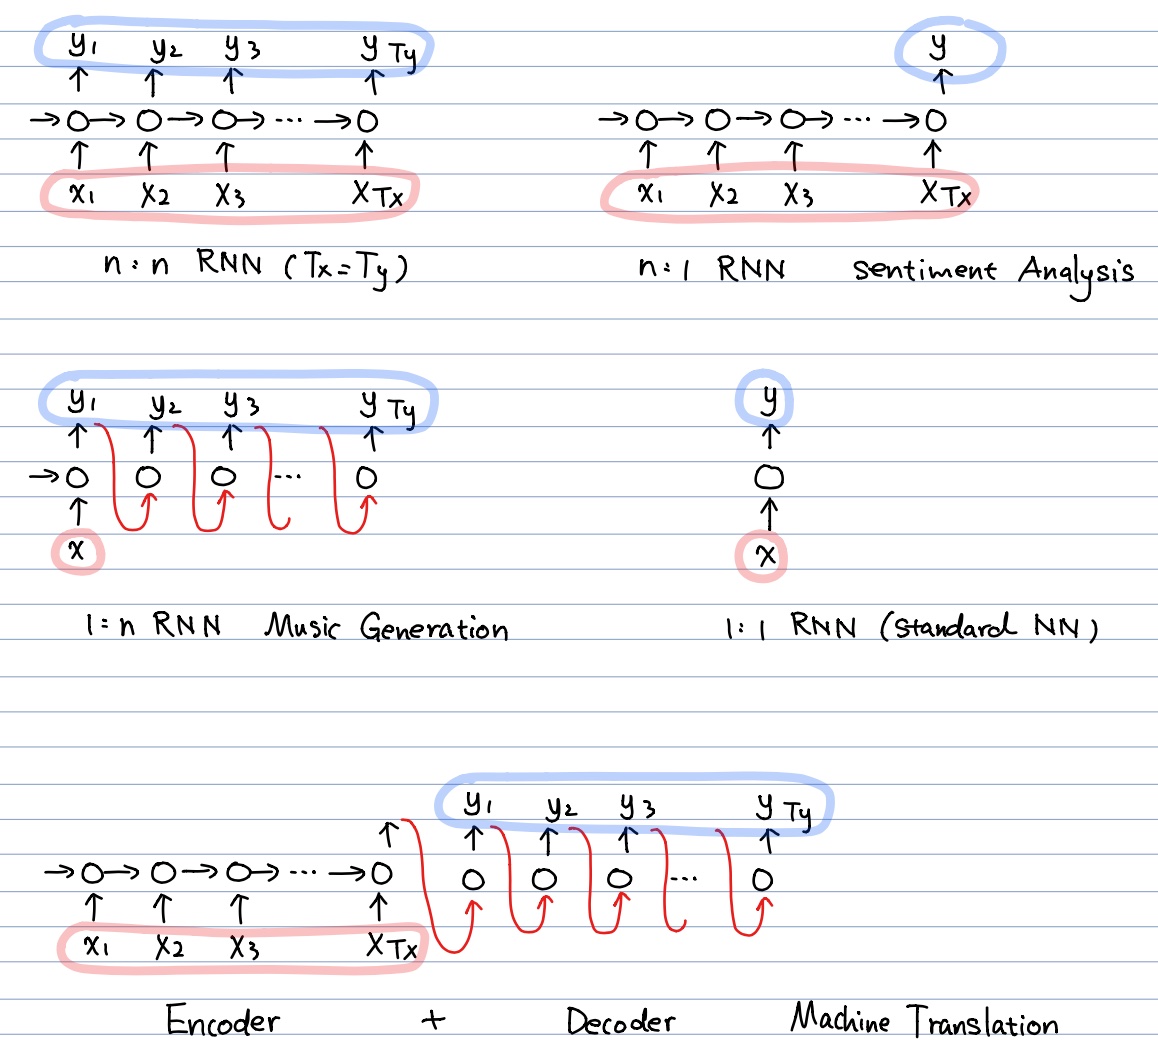 y1 y2 y3 y Ty
y
→ → → ... →
→ → → ... →
x1 x2 x3 xTx
x1 x2 x3 xTx
n:n RNN (Tx=Ty)
n:1 RNN sentiment Analysis
y1 y2 y3 y Ty
y
→ ...
x
x
1:n RNN Music Generation
1:1 RNN (standard NN)
y1 y2 y3 y Ty
→ → → ... → ...
x1 x2 x3 xTx
Encoder + Decoder Machine Translation